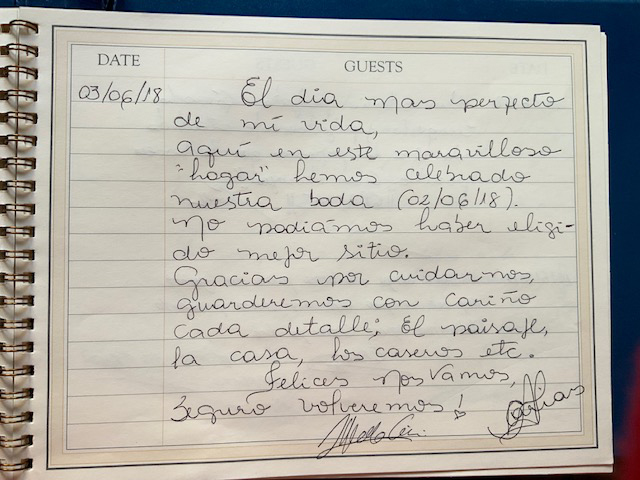 DATE GUESTS
03/06/18 El dia mas perfecto
de mi vida,
Aquí en este maravilloso
"hogar" hemos celebrado
nuestra boda (02/06/18).
No podiámos haber eligi-
do mejor sitio.
Gracias por cuidarnos,
guarderemos con cariño
cada detalle; El paisaje,
la casa, los caseros etc.
Felices nos vamos,
Seguro volveremos!